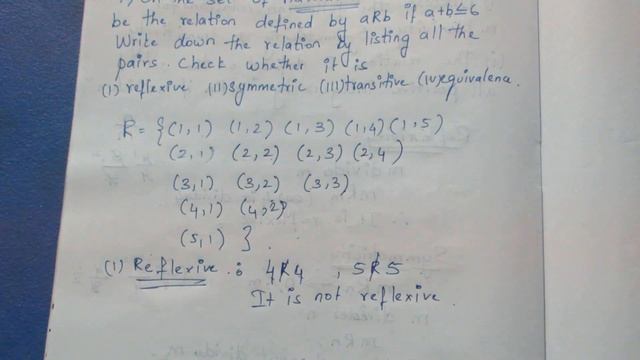 On the set of
be the relation defined by aRb if a+b≤6
Write down the relation by listing all the
pairs. Check whether it is
(i) reflexive (ii) symmetric (iii) transitive (iv) equivalena.
R = {(1,1) (1,2) (1,3) (1,4) (1,5)
(2,1) (2,2) (2,3) (2,4)
(3,1) (3,2) (3,3)
(4,1) (4,2)
(5,1) }.
(1) Reflexive : 4R̸4 , 5R̸5
It is not reflexive.